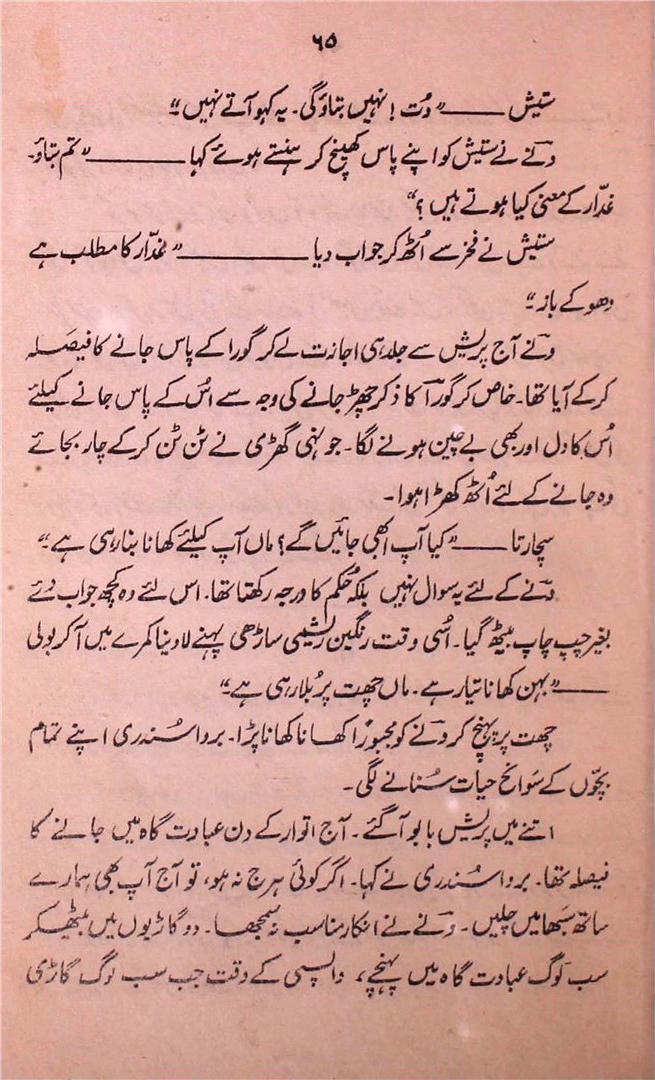 ۶۵
ستیش ——— "دُت! نہیں بتاؤ گی۔ یہ کہو آتے نہیں"
ونے نے ستیش کو اپنے پاس کھینچ کر ہنستے ہوئے کہا ——— "تم بتاؤ۔
غدّار کے معنی کیا ہوتے ہیں؟"
ستیش نے فخر سے اُٹھ کر جواب دیا ——— "غدّار کا مطلب ہے
دھوکے باز"
ونے آج پریش سے جلد ہی اجازت لے کر گورا کے پاس جانے کا فیصلہ
کر کے آیا تھا۔ خاص کر گورا کا ذکر چھڑ جانے کی وجہ سے اُس کے پاس جانے کیلئے
اُس کا دل اور بھی بے چین ہونے لگا۔ جونہی گھڑی نے ٹن ٹن کر کے چار بجائے
وہ جانے کے لئے اُٹھ کھڑا ہوا۔
سچارتا ——— "کیا آپ ابھی جائیں گے؟ ماں آپ کیلئے کھانا بنا رہی ہے"
ونے کے لئے یہ سوال نہیں بلکہ حُکم کا درجہ رکھتا تھا۔ اس لئے وہ کچھ جواب دئے
بغیر چپ چاپ بیٹھ گیا۔ اُسی وقت رنگین ریشمی ساڑھی پہنے لادینا کمرے میں آ کر بولی
——— "بہن کھانا تیار ہے۔ ماں چھت پر بُلا رہی ہے"
چھت پر پہنچ کر ونے کو مجبورًا کھانا کھانا پڑا۔ برواسُندری اپنے تمام
بچّوں کے سَوانح حیات سُنانے لگی۔
اتنے میں پریش بابو آ گئے۔ آج اتوار کے دن عبادت گاہ میں جانے کا
فیصلہ تھا۔ برواسُندری نے کہا۔ اگر کوئی ہرج نہ ہو، تو آج آپ بھی ہمارے
ساتھ سَبھا میں چلیں۔ ونے نے انکار مناسب نہ سمجھا۔ دو گاڑیوں میں بیٹھکر
سب لوگ عبادت گاہ میں پہنچے، واپسی کے وقت جب سب لوگ گاڑی